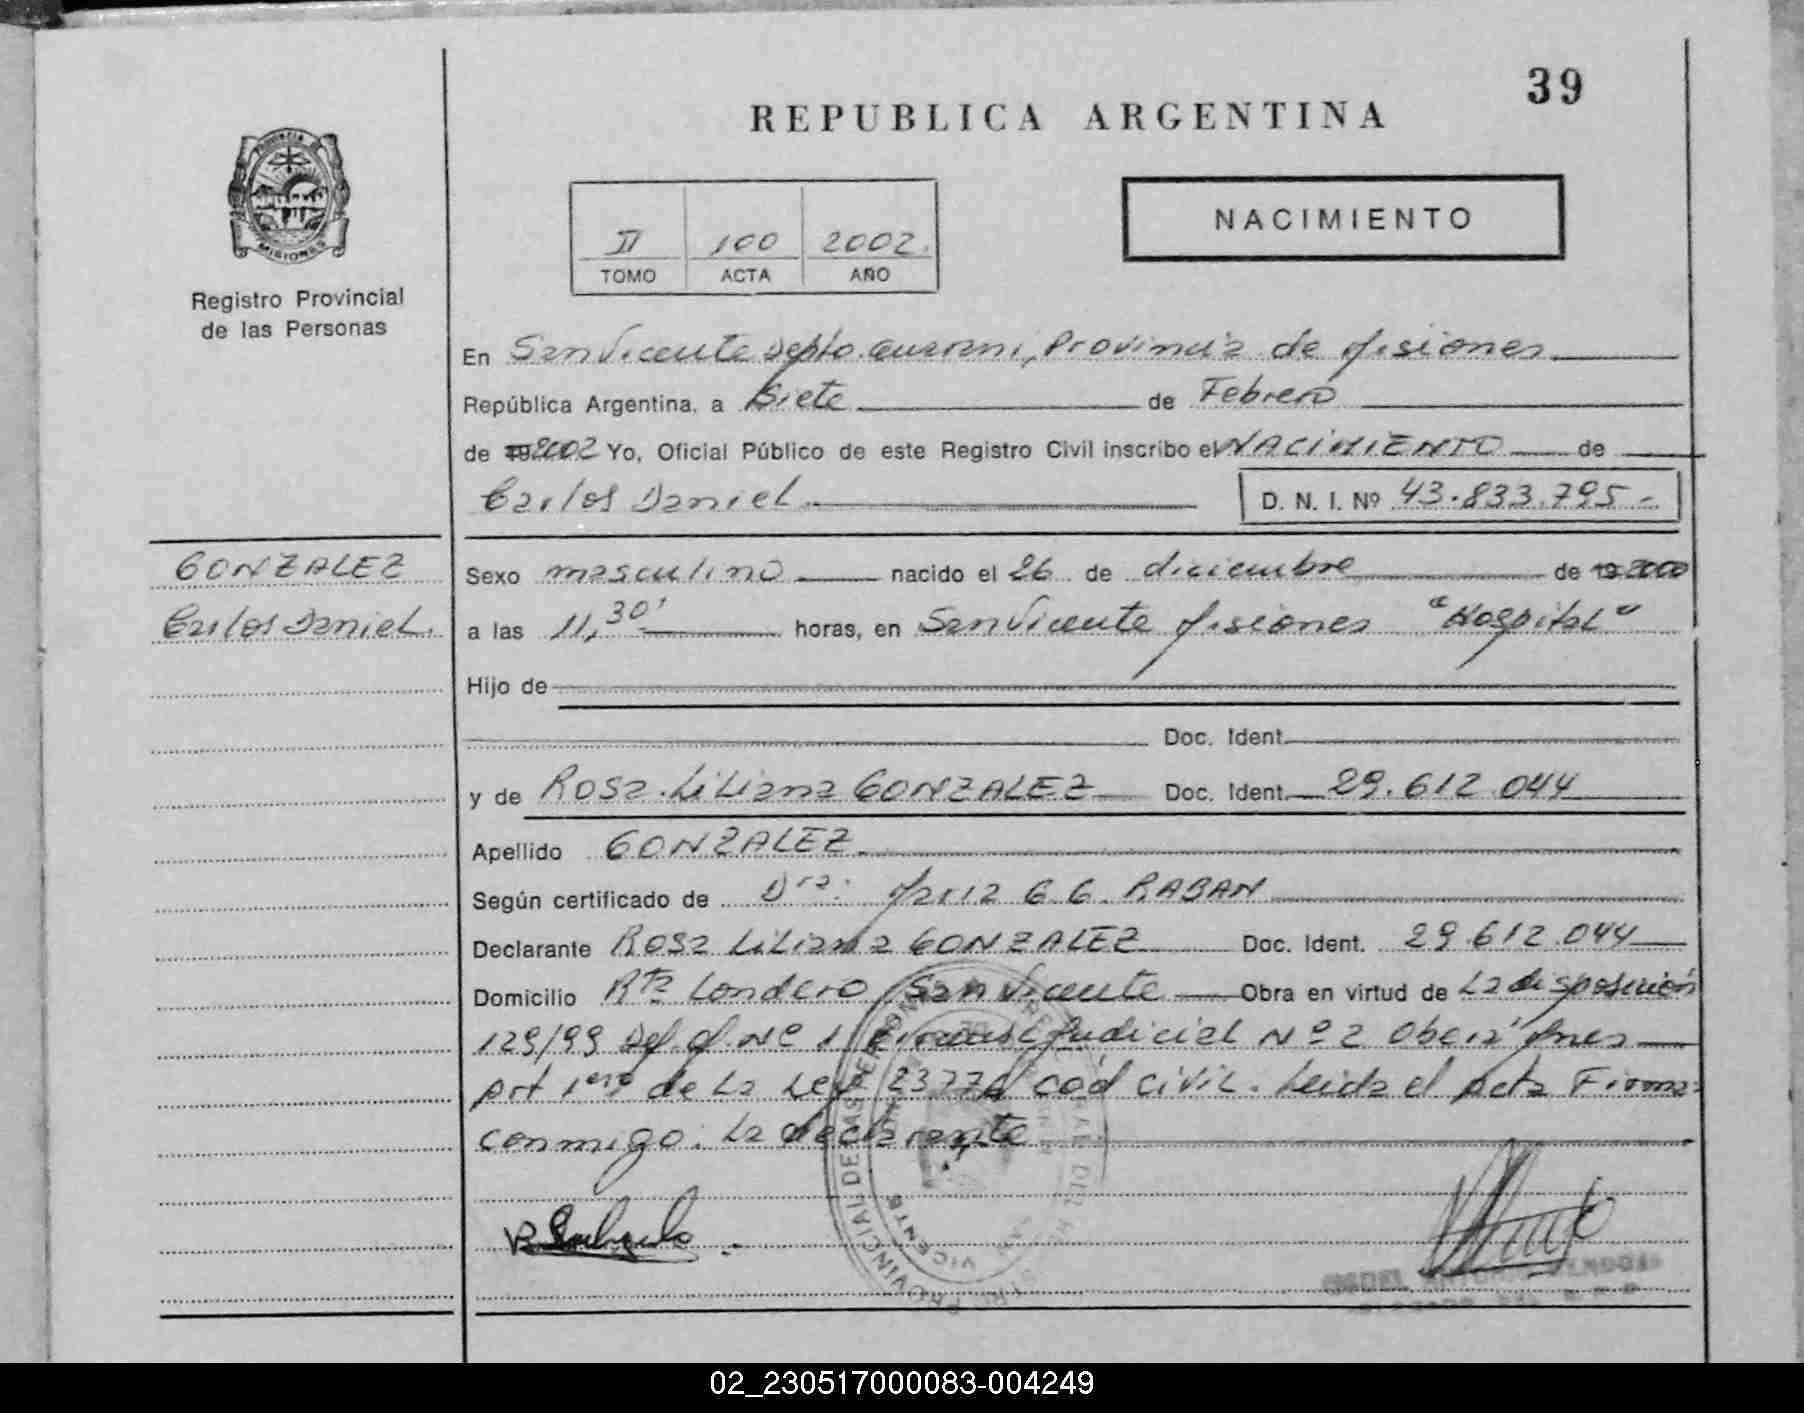 39
REPUBLICA ARGENTINA
PROVINCIA DE
MISIONES
Registro Provincial
de las Personas
II 100 2002.
TOMO ACTA AÑO
NACIMIENTO
En San Vicente Depto. Guarani, Provincia de Misiones
República Argentina, a Siete de Febrero
de 19 2002 Yo, Oficial Público de este Registro Civil inscribo el NACIMIENTO de
Carlos Daniel D. N. I. Nº 43.833.795.-
GONZALEZ
Carlos Daniel.
Sexo masculino nacido el 26 de diciembre de 19 2000
a las 11,30' horas, en San Vicente Misiones "Hospital"
Hijo de
Doc. Ident.
y de Rosa Liliana GONZALEZ Doc. Ident. 29.612.044
Apellido GONZALEZ
Según certificado de Dra. Maria G. G. RABAN
Declarante Rosa Liliana GONZALEZ Doc. Ident. 29.612.044
Domicilio Rta Londero San Vicente Obra en virtud de La disposición
129/99 Def. Of. Nº 1 Judicial Nº 2 Obera Mnes
Art 1ero de la Ley 23776 cod civil. Leida el Acta Firma
conmigo. La declarante
PROVINCIAL DE LAS PERSONAS
VICENTE
02_230517000083-004249